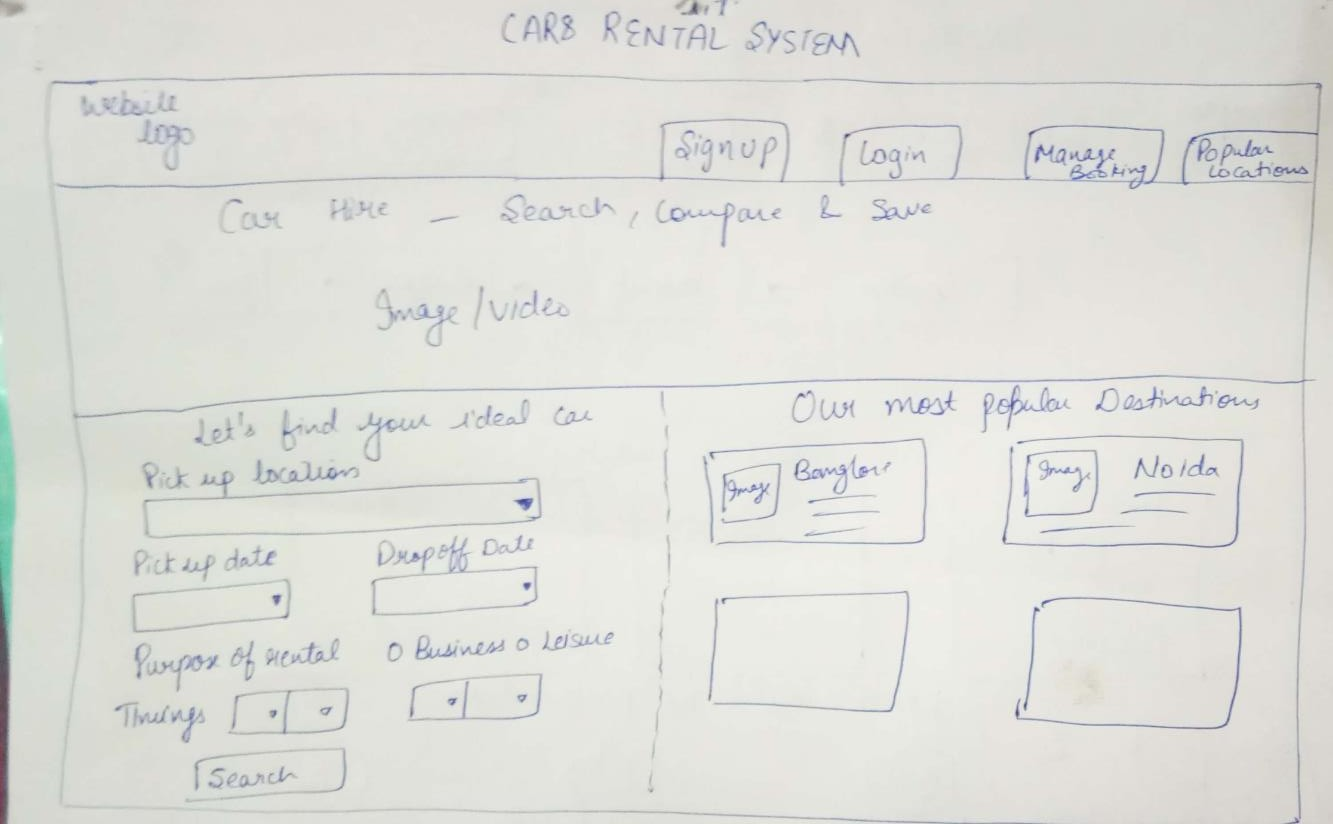 CARS RENTAL SYSTEM
Website
logo
Sign up
Login
Manage
Booking
Popular
Locations
Car Hire – Search, Compare & Save
Image/Video
Let's find your ideal car
Pick up location
Pick up date
Dropoff Date
Purpose of rental
O Business O Leisure
Timings
Search
Our most popular Destinations
Image
Banglore
Image
Noida